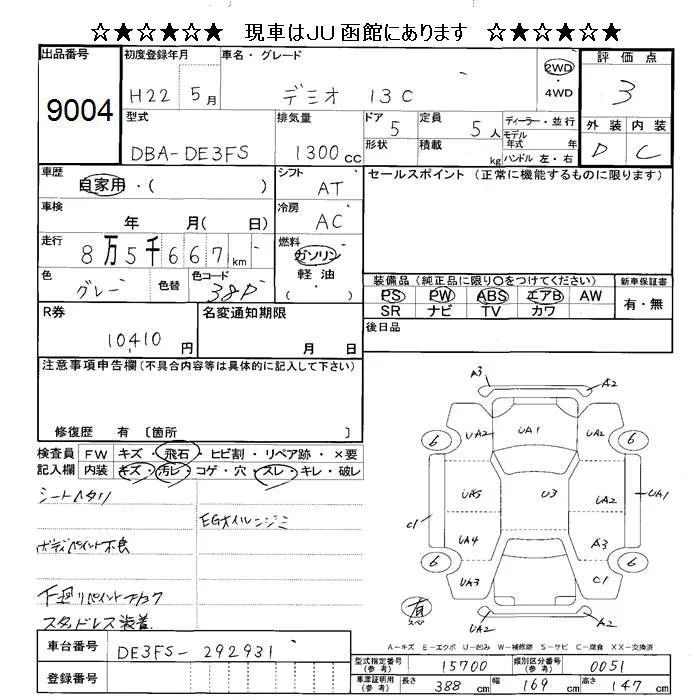 ☆★☆★☆★ 現車はJU函館にあります ☆★☆★☆★
出品番号 9004
初度登録年月 H22 5月
車名・グレード デミオ 13C
2WD ・ 4WD
評価点 3
外装 D 内装 C
型式 DBA-DE3FS
排気量 1300cc
ドア 5 形状
定員 5人 積載 kg
ディーラー・並行
モデル年式 年式
ハンドル 左・右
車歴 自家用・( )
シフト AT
車検 年 月( 日)
冷房 AC
走行 8万5千667km
燃料 ガソリン 軽油 ( )
色 グレー 色替 色コード 38P
セールスポイント (正常に機能するものに限ります)
装備品(純正品に限り〇をつけてください)
PS PW ABS エアB AW
SR ナビ TV カワ
新車保証書 有・無
後日品
R券 10410円
名変通知期限 月 日
注意事項申告欄(不具合内容等は具体的に記入して下さい)
修復歴 有 〔箇所
検査員記入欄
FW キズ・飛石・ヒビ割・リペア跡・×要
内装 キズ・汚レ・コゲ・穴・スレ・キレ・破レ
シートヘタリ
EGオイルニジミ
ボディペイント不良
下廻リペイント
スタッドレス装着
A3 A2
UA2 UA1 UA2
6 6
UA5 U3 UA2 UA1
C1
UA4 A3
6 6
UA3 C1
A2 A2
有 スペア
A-キズ E-エクボ U-凹み W-補修跡 S-サビ C-腐食 XX-交換済
車台番号 DE3FS-292931
登録番号
型式指定番号(参考) 15700 類別区分番号(参考) 0051
車庫証明用(参考) 長さ 388cm 幅 169cm 高さ 147cm